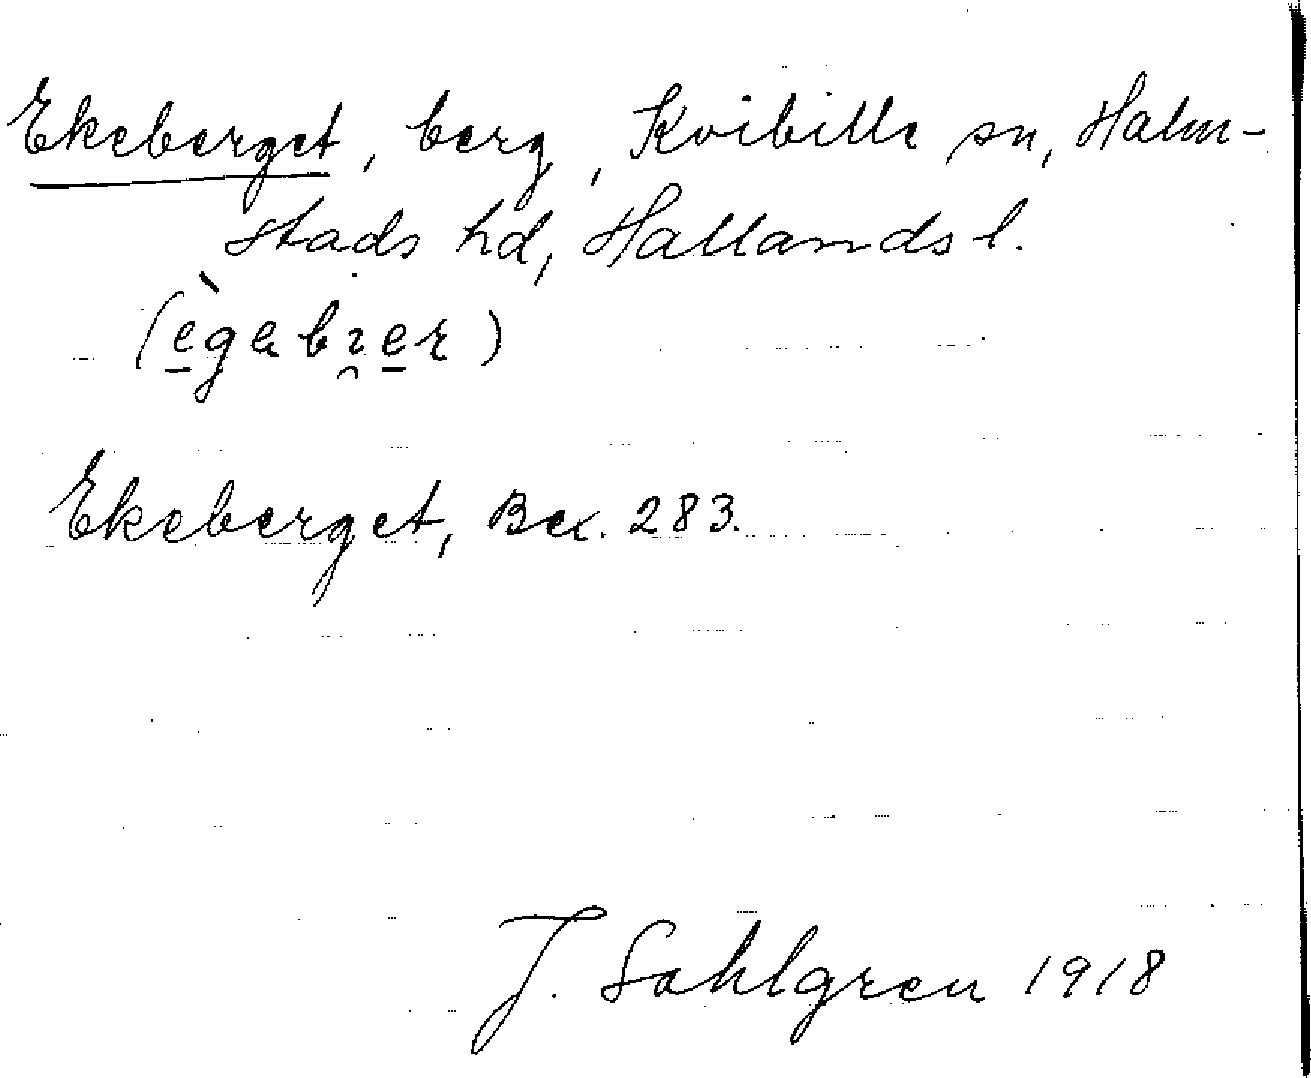 Ekeberget, berg, Kvibille sn, Halm-
stads hd, Hallands l.
Ekeberget, Bex. 283.
J. Sahlgren 1918